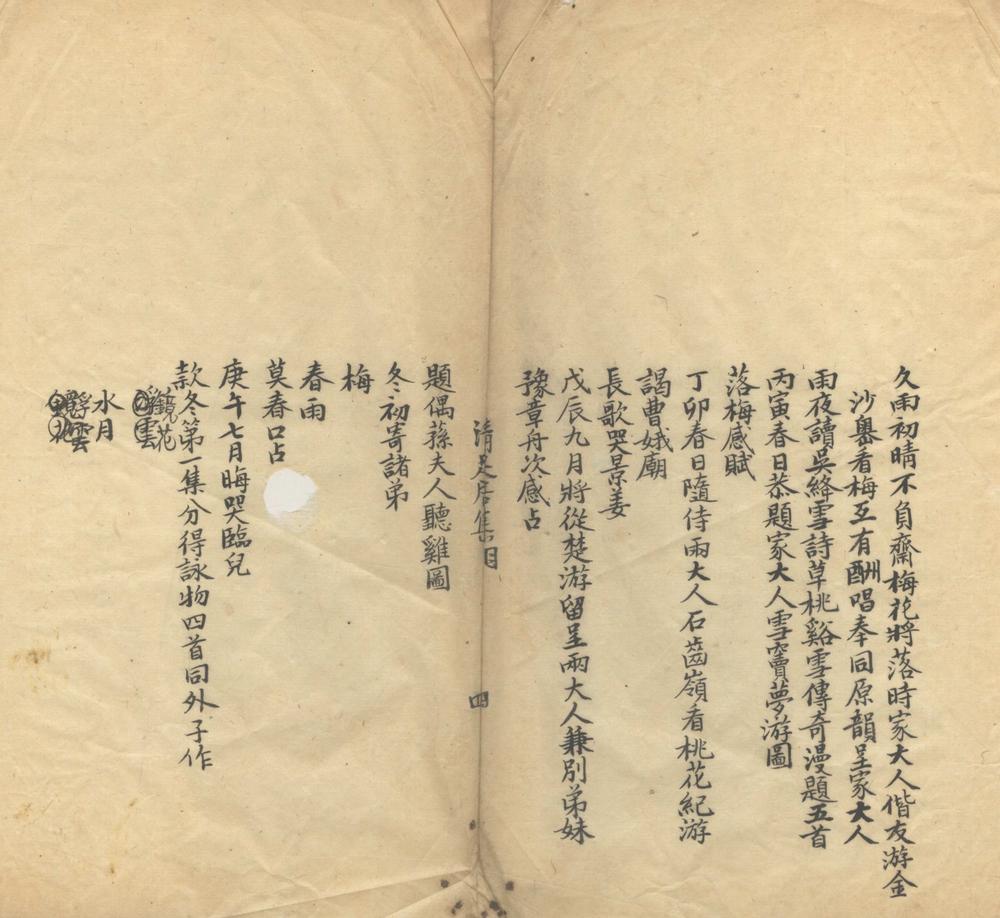 久雨初晴不負齋梅花將落時家大人偕友游金
沙嶴看梅互有酬唱奉同原韻呈家大人
雨夜讀吳絳雪詩草桃谿雪傳奇漫題五首
丙寅春日恭題家大人雪竇夢游圖
落梅感賦
丁卯春日隨侍兩大人石齒嶺看桃花紀游
謁曹娥廟
長歌哭景姜
戊辰九月將從楚游留呈兩大人兼別弟妹
豫章舟次感占
清足居集目
四
題偶蓀夫人聽雞圖
冬初寄諸弟
梅
春雨
莫春口占
庚午七月晦哭臨兒
款冬第一集分得詠物四首同外子作
鏡花
水月
浮雲